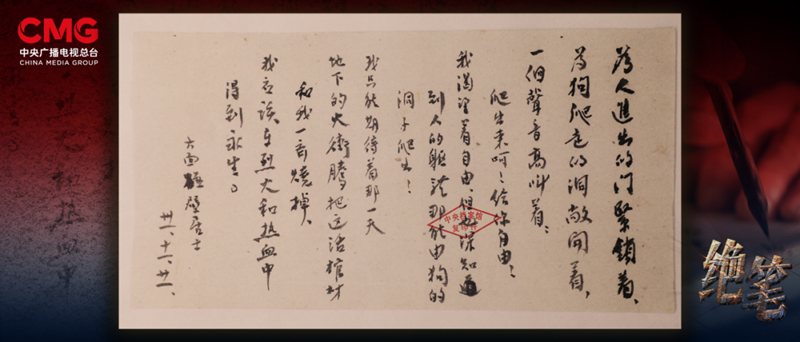 CMG
中央广播电视总台
CHINA MEDIA GROUP
為人進出的门緊鎖着、
為狗爬走的洞敞開着、
一個聲音高叫着：
爬出来呵！给你自由！
我渴望着自由但也深知道
到人的軀體那能由狗的
洞子爬出！
我只能期待着那一天
地下的火衝腾把这活棺材
和我一齐燒掉、
我应该在烈火和热血中
得到永生。
六面碰壁居士
卅一、十一、廿一、
中央档案馆
复制件
绝笔